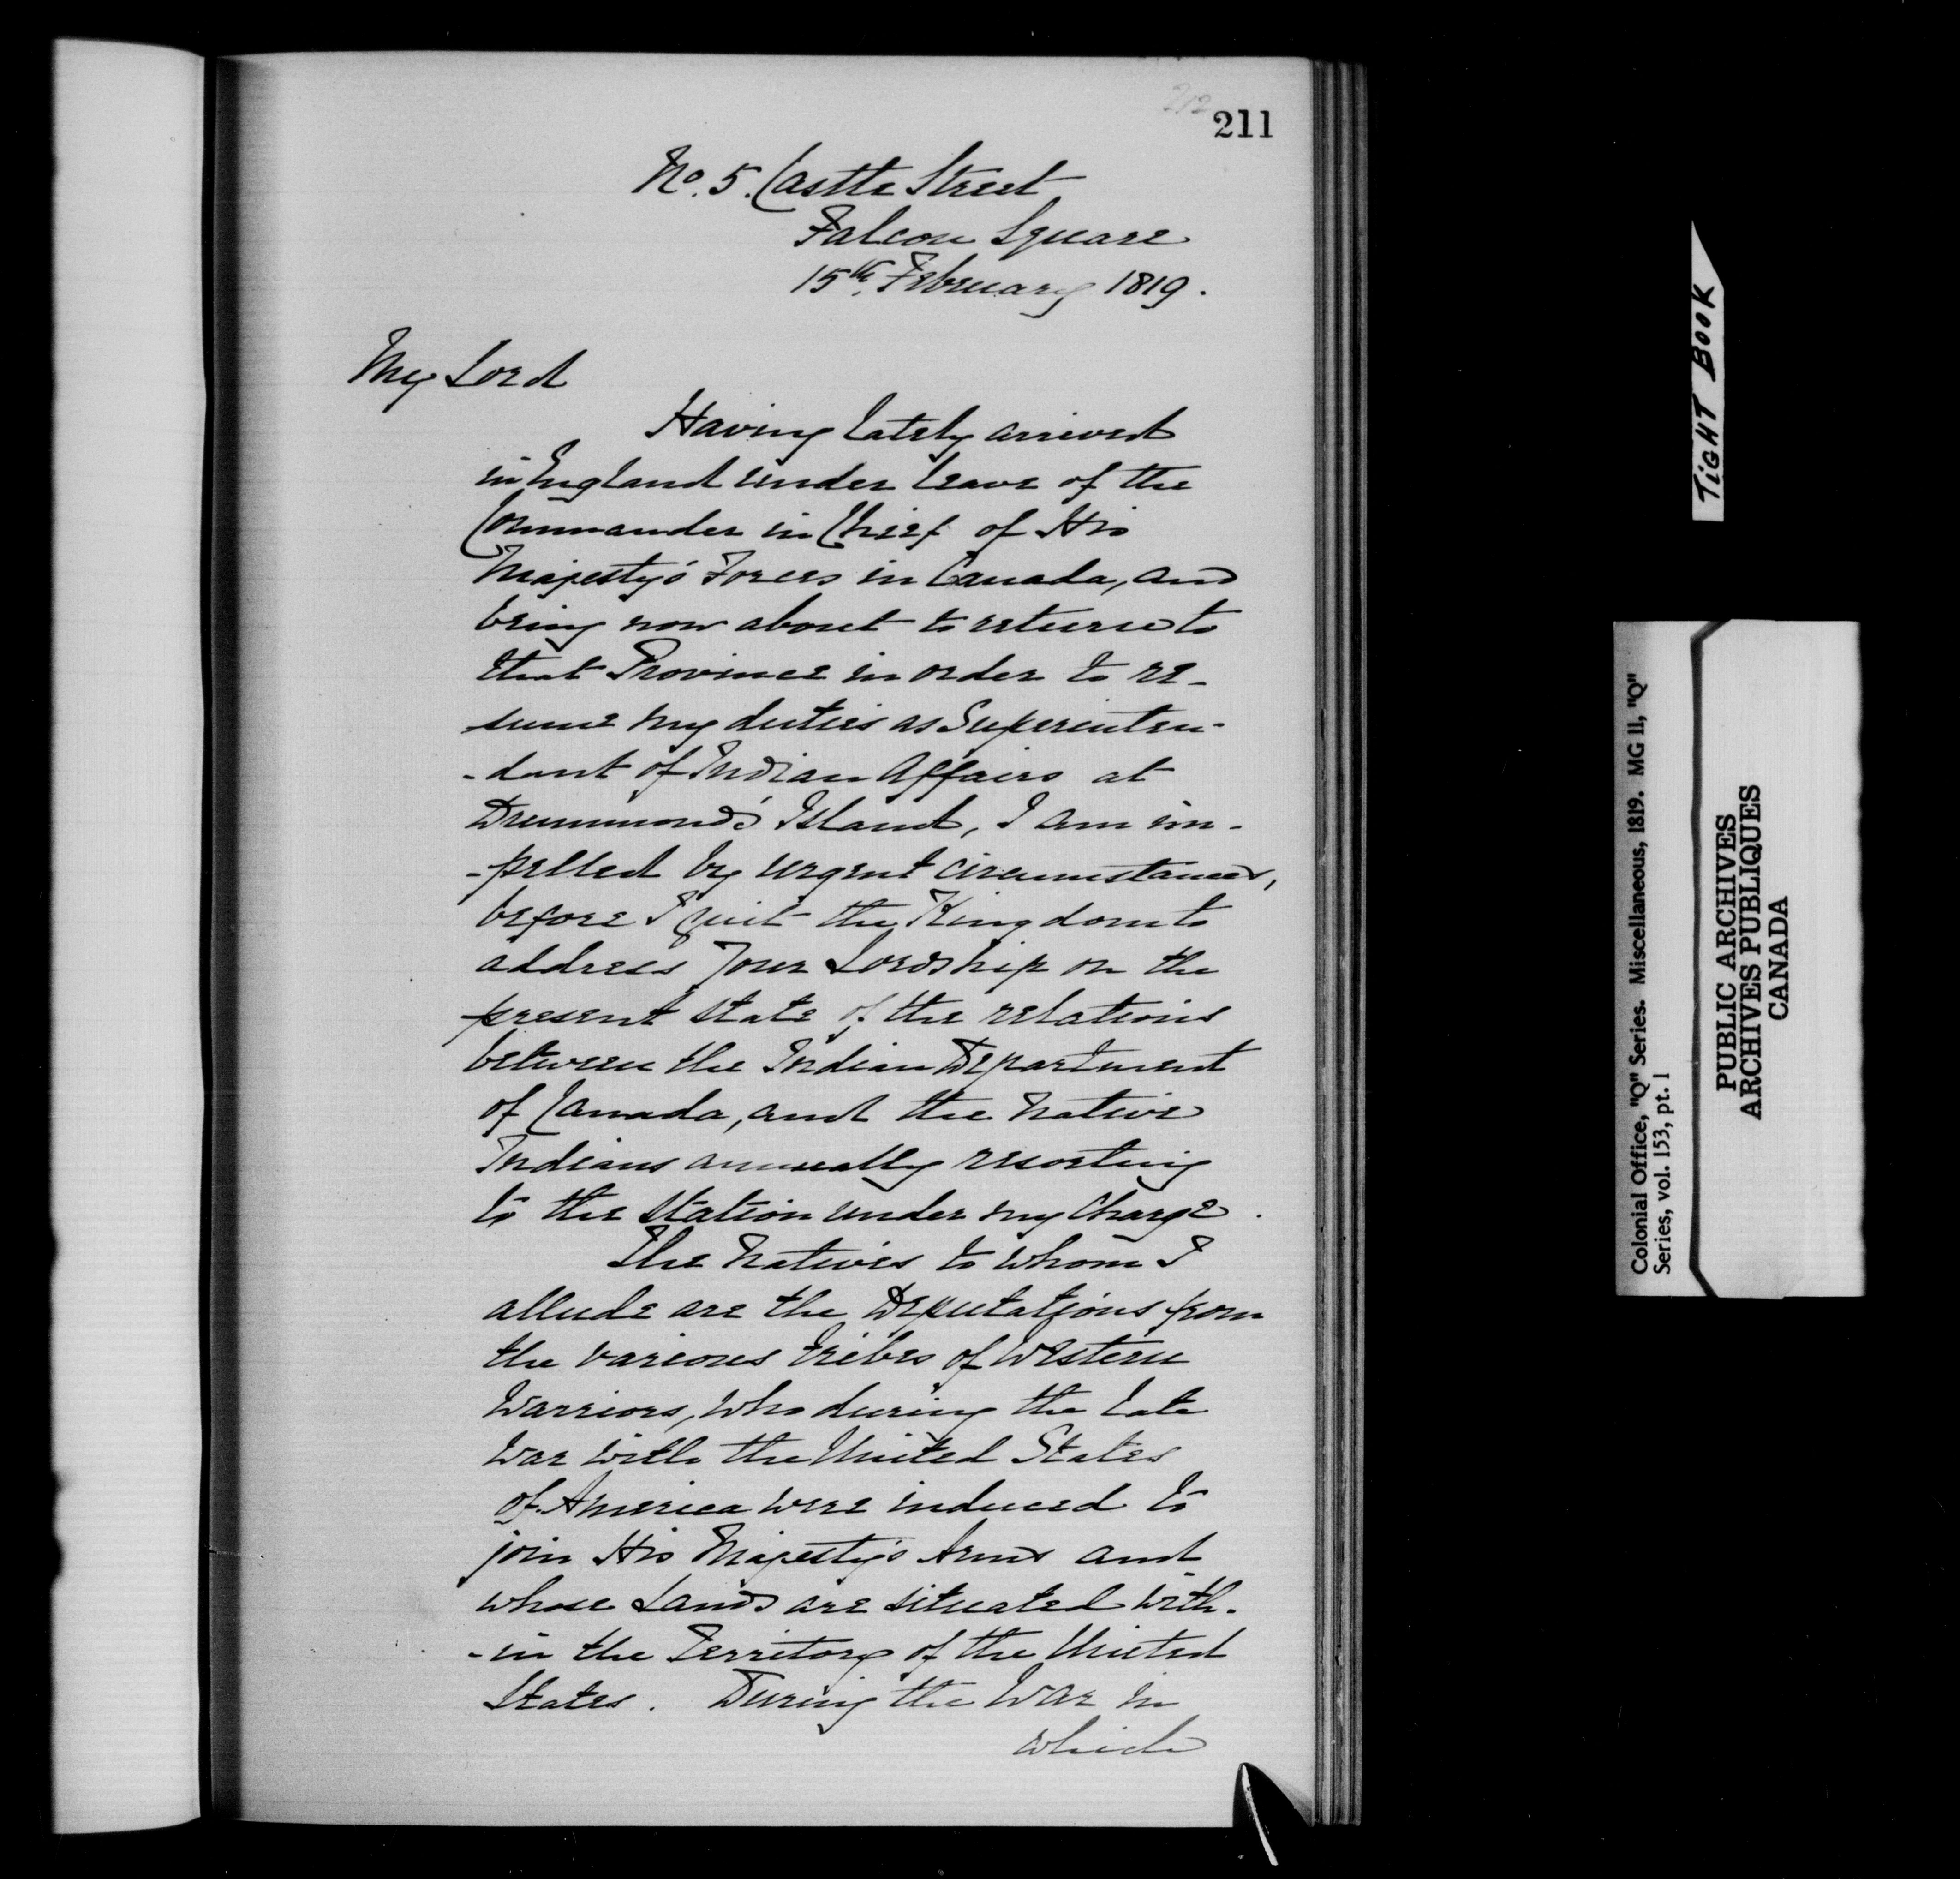 212
211
No. 5. Castle Street
Falcon Square
15th. February 1819.
My Lord
Having lately arrived
in England under leave of the
Commander in Chief of His
Majesty's Forces in Canada, and
being now about to return to
that Province in order to re-
sume my duties as Superinten-
-dant of Indian Affairs at
Drummond's Island, I am im-
-pelled by urgent circumstances,
before I quit the Kingdom to
address Your Lordship on the
present state of the relations
between the Indian Department
of Canada, and the Native
Indians annually resorting
to the Station under my Charge.
The Natives to whom I
allude are the Deputations from
the various tribes of Western
Warriors, who during the late
War with the United States
of America were induced to
join His Majesty's Arms and
whose Lands are situated with-
-in the Territory of the United
States. During the War in
which
TIGHT BOOK
Colonial Office, "Q" Series. Miscellaneous, 1819. MG 11, "Q"
Series, vol. 153, pt. 1
PUBLIC ARCHIVES
ARCHIVES PUBLIQUES
CANADA